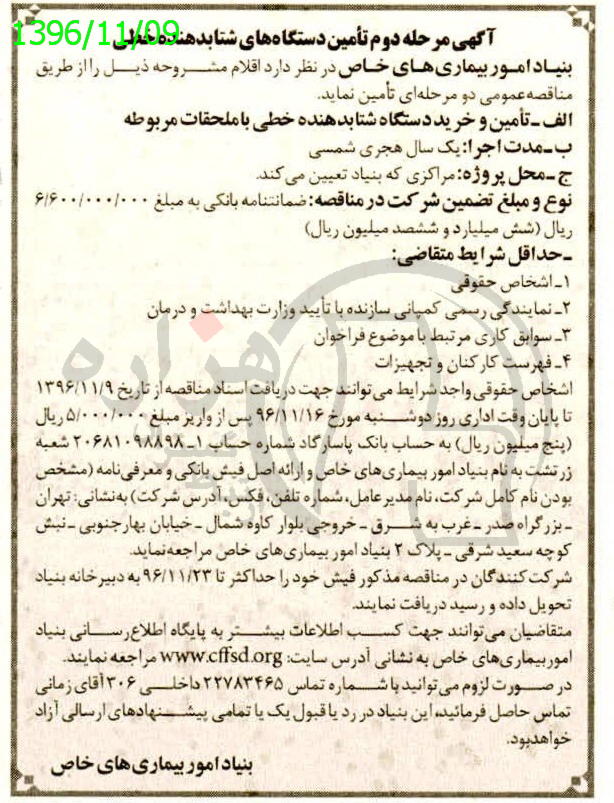 1396/11/09
آگهی مرحله دوم تأمین دستگاه‌های شتابدهنده خطی
بنیاد امور بیماری‌های خاص در نظر دارد اقلام مشروحه ذیل را از طریق
مناقصه عمومی دو مرحله‌ای تأمین نماید.
الف ـ تأمین و خرید دستگاه شتابدهنده خطی با ملحقات مربوطه
ب ـ مدت اجرا: یک سال هجری شمسی
ج ـ محل پروژه: مراکزی که بنیاد تعیین می‌کند.
نوع و مبلغ تضمین شرکت در مناقصه: ضمانتنامه بانکی به مبلغ ۶/۶۰۰/۰۰۰/۰۰۰
ریال (شش میلیارد و ششصد میلیون ریال)
ـ حداقل شرایط متقاضی:
۱ـ اشخاص حقوقی
۲ـ نمایندگی رسمی کمپانی سازنده با تأیید وزارت بهداشت و درمان
۳ـ سوابق کاری مرتبط با موضوع فراخوان
۴ـ فهرست کارکنان و تجهیزات
اشخاص حقوقی واجد شرایط می‌توانند جهت دریافت اسناد مناقصه از تاریخ ۱۳۹۶/۱۱/۹
تا پایان وقت اداری روز دوشنبه مورخ ۹۶/۱۱/۱۶ پس از واریز مبلغ ۵/۰۰۰/۰۰۰ ریال
(پنج میلیون ریال) به حساب بانک پاسارگاد شماره حساب ۱ـ۲۰۶۸۱۰۹۸۸۹۸ شعبه
زرتشت به نام بنیاد امور بیماری‌های خاص و ارائه اصل فیش بانکی و معرفی‌نامه (مشخص
بودن نام کامل شرکت، نام مدیرعامل، شماره تلفن، فکس، آدرس شرکت) به‌نشانی: تهران
ـ بزرگراه صدر ـ غرب به شرق ـ خروجی بلوار کاوه شمال ـ خیابان بهار جنوبی ـ نبش
کوچه سعید شرقی ـ پلاک ۲ بنیاد امور بیماری‌های خاص مراجعه نماید.
شرکت‌کنندگان در مناقصه مذکور فیش خود را حداکثر تا ۹۶/۱۱/۲۳ به دبیرخانه بنیاد
تحویل داده و رسید دریافت نمایند.
متقاضیان می‌توانند جهت کسب اطلاعات بیشتر به پایگاه اطلاع‌رسانی بنیاد
امور بیماری‌های خاص به نشانی آدرس سایت: www.cffsd.org مراجعه نمایند.
در صورت لزوم می‌توانید با شماره تماس ۲۲۷۸۳۴۶۵ داخلی ۳۰۶ آقای زمانی
تماس حاصل فرمائید، این بنیاد در رد یا قبول یک یا تمامی پیشنهادهای ارسالی آزاد
خواهدبود.
بنیاد امور بیماری‌های خاص